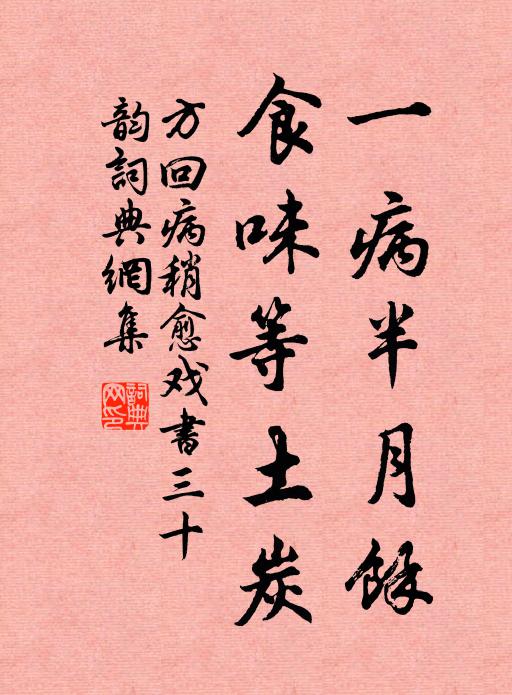 一病半月餘
食味等土炭
方回病稍愈戏書三十
韵詞典網集
詞典
网印